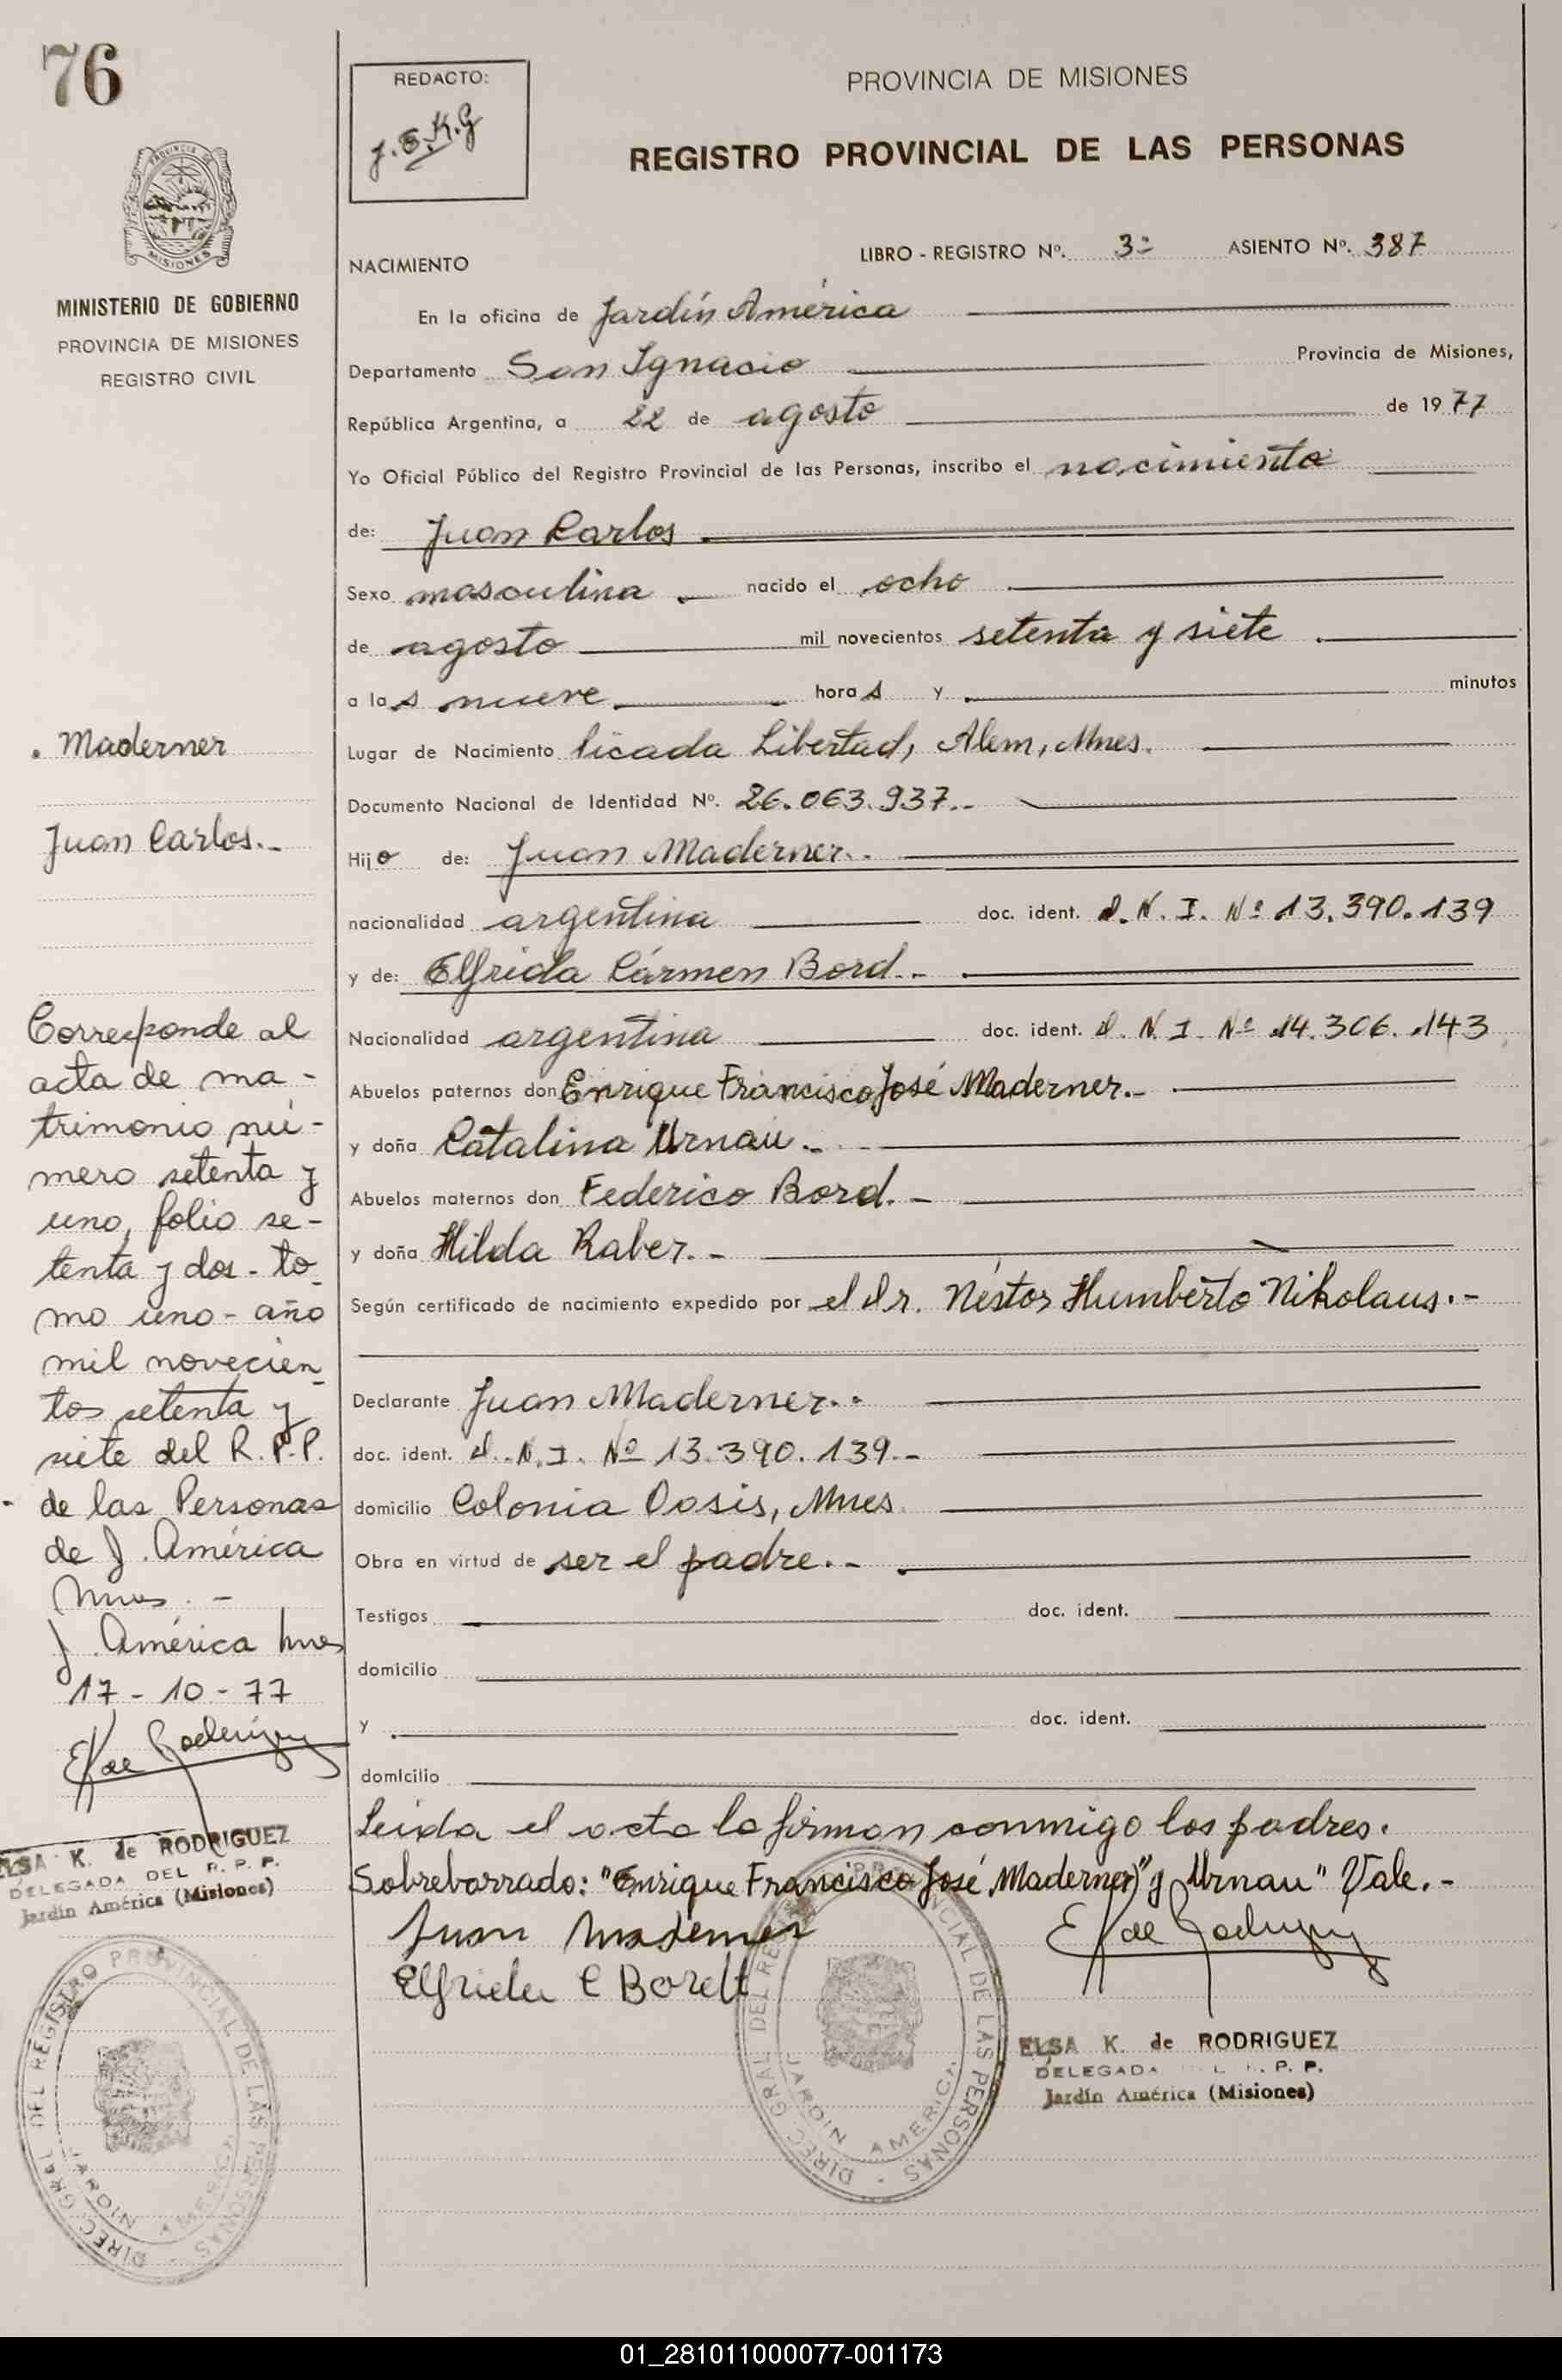 76
MINISTERIO DE GOBIERNO
PROVINCIA DE MISIONES
REGISTRO CIVIL
. Maderner
Juan Carlos.-
Corresponde al
acta de ma-
trimonio nú-
mero setenta y
uno, folio se-
tenta y dos - to-
mo uno - año
mil novecien-
tos setenta y
siete del R.P.P.
de las Personas
de J. América
Mnes. -
J. América Mnes
17-10-77
ELSA K. de RODRIGUEZ
DELEGADA DEL R. P. P.
Jardín América (Misiones)
DIREC. GRAL. DEL REGISTRO PROVINCIAL DE LAS PERSONAS
JARDIN AMERICA
REDACTO:
J.E.K.G
PROVINCIA DE MISIONES
REGISTRO PROVINCIAL DE LAS PERSONAS
NACIMIENTO
LIBRO - REGISTRO Nº. 3º ASIENTO Nº. 387
En la oficina de Jardín América
Departamento San Ignacio Provincia de Misiones,
República Argentina, a 22 de agosto de 1977
Yo Oficial Público del Registro Provincial de las Personas, inscribo el nacimiento
de: Juan Carlos
Sexo masculino nacido el ocho
de agosto mil novecientos setenta y siete
a las nueve horas y minutos
Lugar de Nacimiento Picada Libertad, Alem, Mnes.
Documento Nacional de Identidad Nº. 26.063.937.-
Hijo de: Juan Maderner.-
nacionalidad argentina doc. ident. D.N.I. Nº 13.390.139
y de: Elfrida Cármen Bord.-
Nacionalidad argentina doc. ident. D.N.I. Nº 14.306.143
Abuelos paternos don Enrique Francisco José Maderner.-
y doña Catalina Urnau.-
Abuelos maternos don Federico Bord.-
y doña Hilda Raber.-
Según certificado de nacimiento expedido por el Dr. Néstor Humberto Nikolaus.-
Declarante Juan Maderner.-
doc. ident. D.N.I. Nº 13.390.139.-
domicilio Colonia Oasis, Mnes.
Obra en virtud de ser el padre.-
Testigos doc. ident.
domicilio
y doc. ident.
domicilio
Leída el acta la firman conmigo los padres.
Sobrebarrado: "Enrique Francisco José Maderner" y "Urnau" Vale.-
Juan Maderner
Elfrida C Bordt
ELSA K. de RODRIGUEZ
DELEGADA R. P. P.
Jardín América (Misiones)
DIREC. GRAL. DEL REGISTRO PROVINCIAL DE LAS PERSONAS
JARDIN AMERICA
01_281011000077-001173